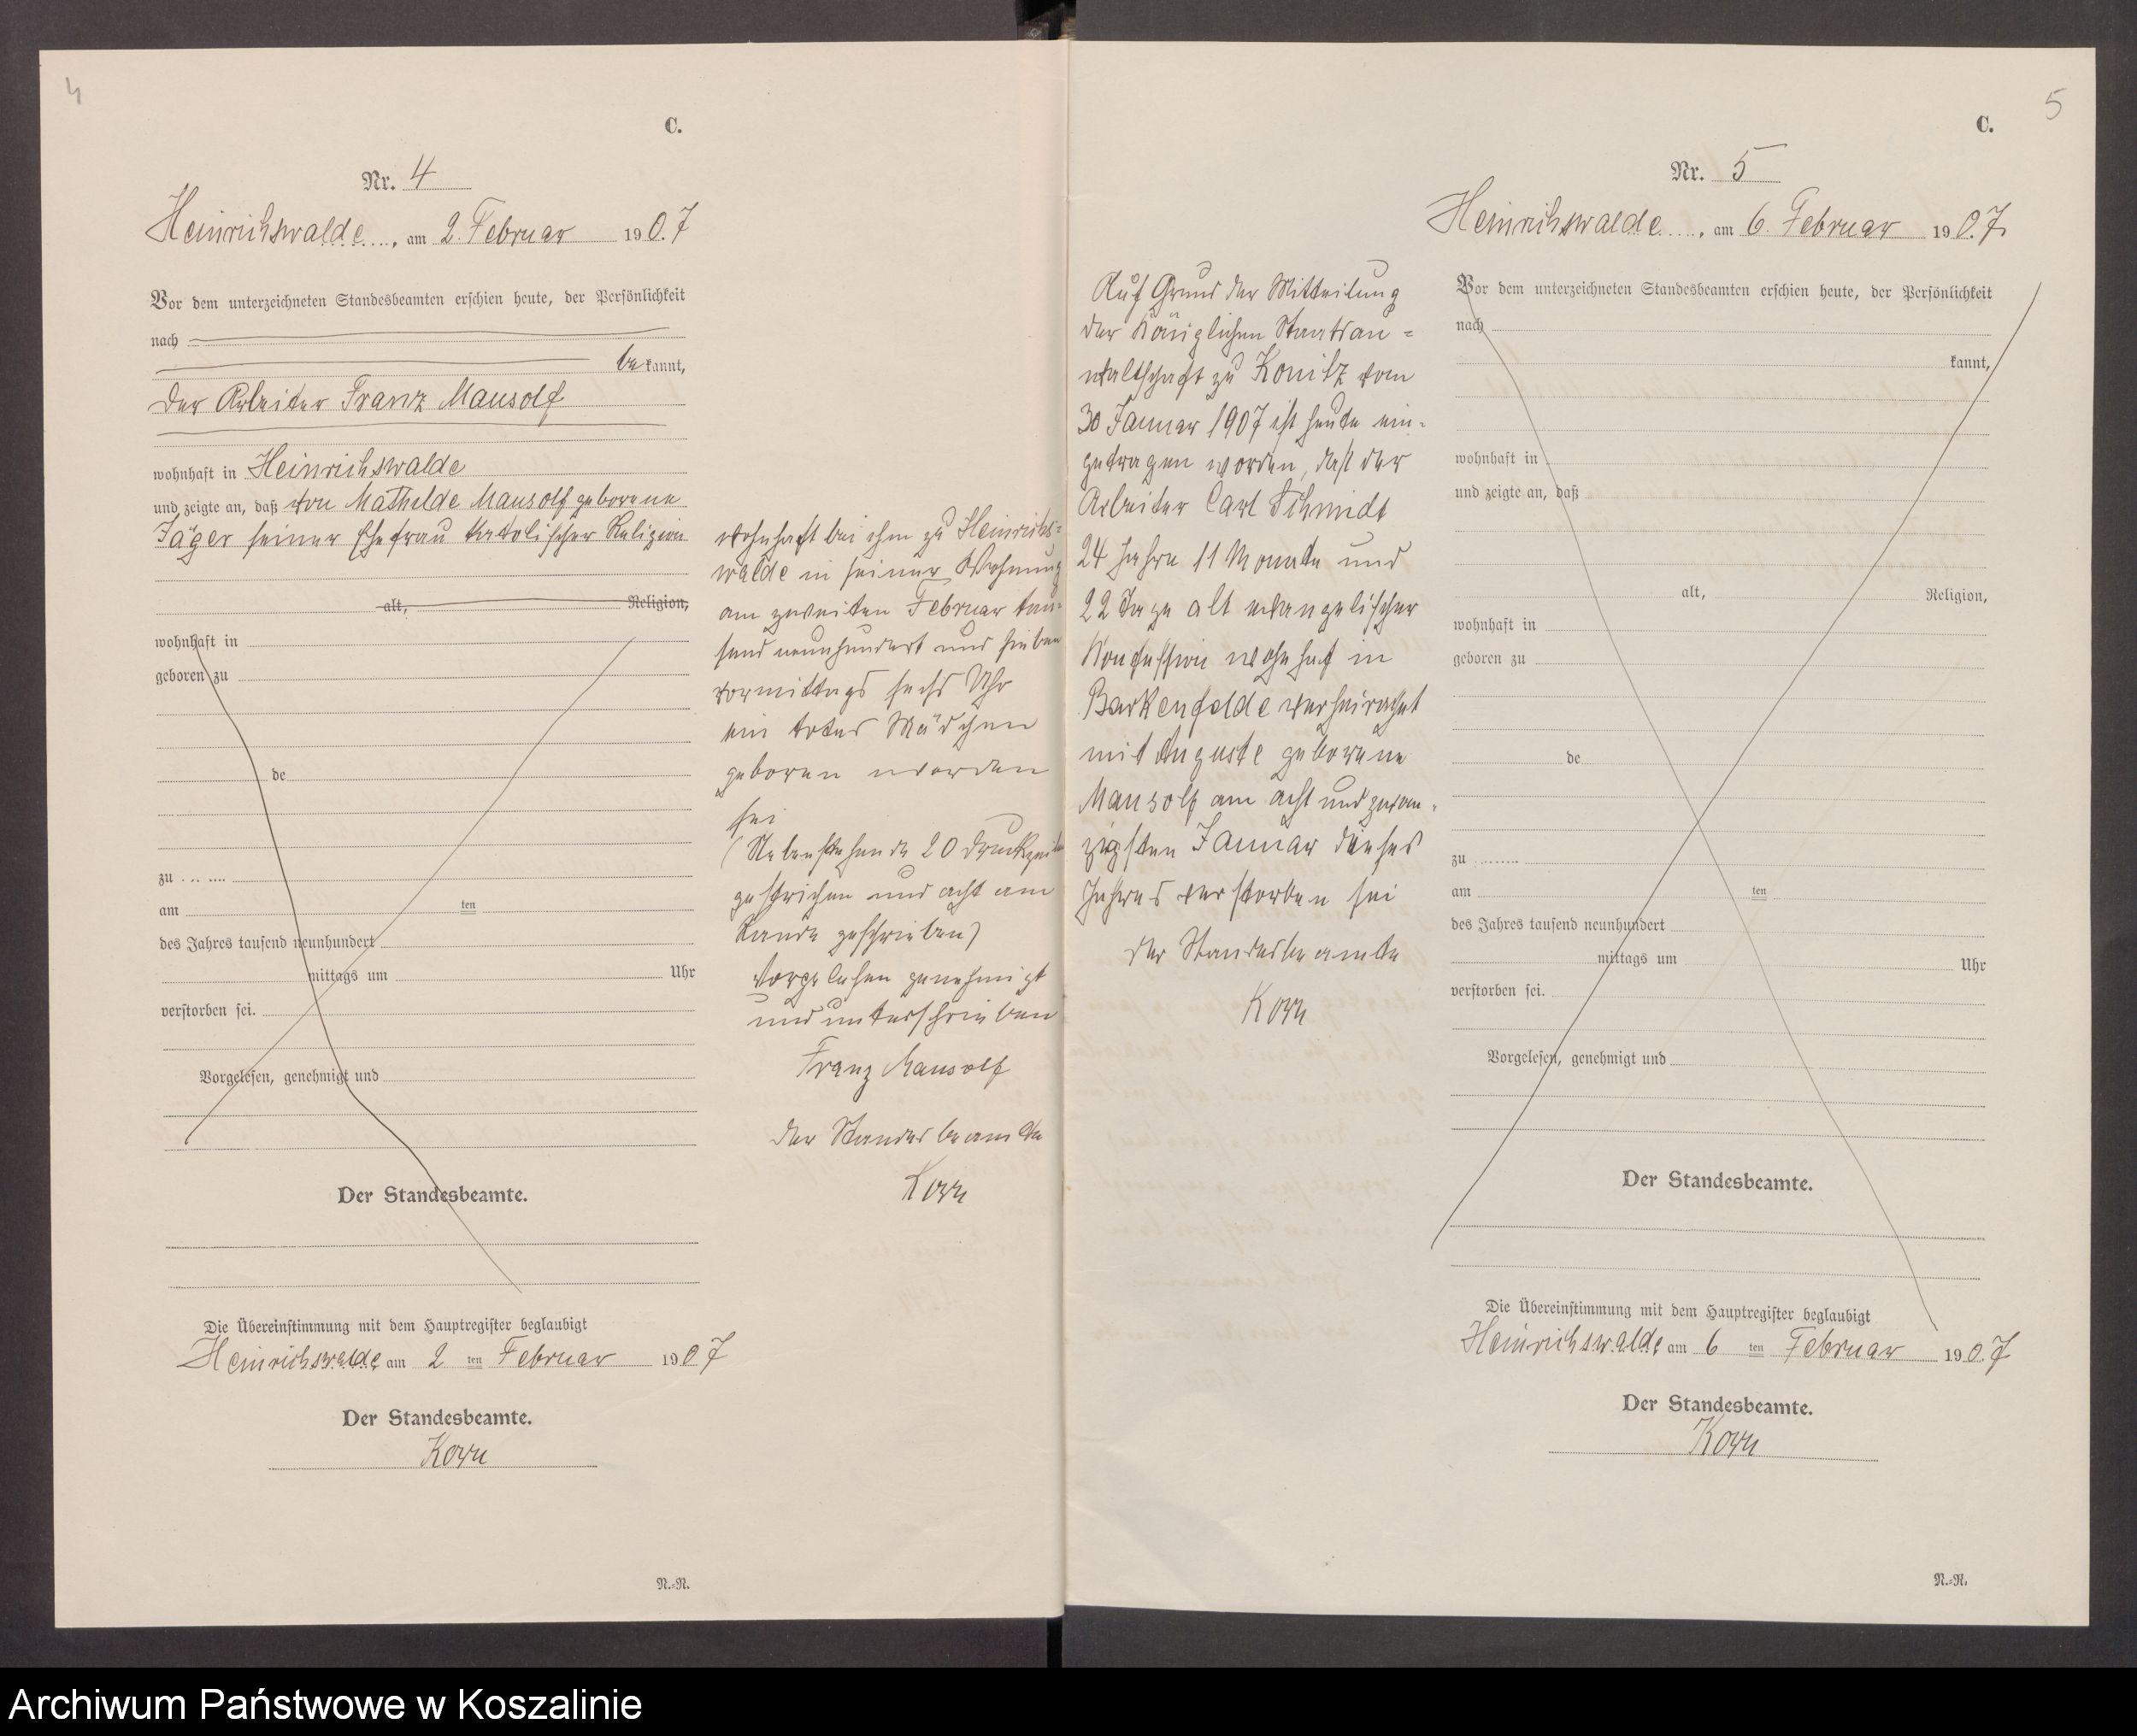 4
C.
Nr. 4
Heinrichswalde, am 2. Februar 1907
Vor dem unterzeichneten Standesbeamten erschien heute, der Persönlichkeit
nach
be kannt,
der Arbeiter Franz Mausolf
wohnhaft in Heinrichswalde
und zeigte an, daß von Mathilde Mausolf geborene
Jäger seiner Ehefrau katolischer Religion
alt, Religion,
wohnhaft in
geboren zu
de
zu
am ten
des Jahres tausend neunhundert
mittags um Uhr
verstorben sei.
Vorgelesen, genehmigt und
Der Standesbeamte.
Die Übereinstimmung mit dem Hauptregister beglaubigt
Heinrichswalde am 2 ten Februar 1907
Der Standesbeamte.
Korn
N.=N.
wohnhaft bei ihm zu Heinrichs=
walde in seiner Wohnung
am zweiten Februar tau=
send neunhundert und sieben
vormittags sechs Uhr
ein totes Mädchen
geboren worden
sei
(Nebenstehende 20 Druckzeilen
gestrichen und acht am
Rande geschrieben)
Vorgelesen genehmigt
und unterschrieben
Franz Mausolf
Der Standesbeamte
Korn
5
C.
Nr. 5
Heinrichswalde, am 6. Februar 1907
Auf Grund der Mitteilung
der Königlichen Staatsan=
waltschaft zu Konitz vom
30 Januar 1907 ist heute ein=
getragen worden, daß der
Arbeiter Carl Schmidt
24 Jahre 11 Monate und
22 Tage alt evangelischer
Konfession wohnhaft in
Barkenfelde verheirathet
mit Auguste geborene
Mausolf am acht und zwan=
zigsten Januar dieses
Jahres verstorben sei
Der Standesbeamte
Korn
Vor dem unterzeichneten Standesbeamten erschien heute, der Persönlichkeit
nach
kannt,
wohnhaft in
und zeigte an, daß
alt, Religion,
wohnhaft in
geboren zu
de
zu
am ten
des Jahres tausend neunhundert
mittags um Uhr
verstorben sei.
Vorgelesen, genehmigt und
Der Standesbeamte.
Die Übereinstimmung mit dem Hauptregister beglaubigt
Heinrichswalde am 6 ten Februar 1907
Der Standesbeamte.
Korn
N.=N.
Archiwum Państwowe w Koszalinie